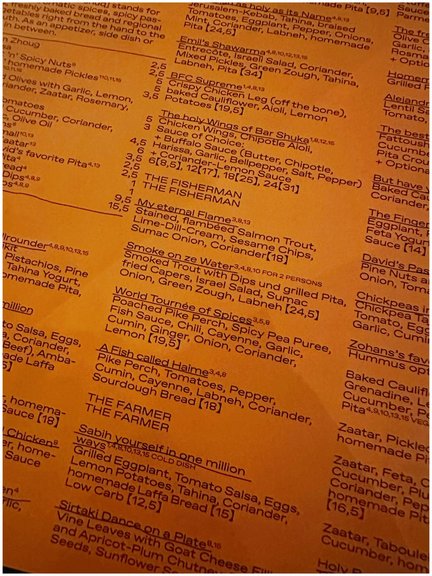 stands for
freshly baked bread and regional
with spices, spicy, pas-
uth. As right from the hand to the
appetizer, side dish or
n between.
n Zhoug
n' Spicy Nuts⁸
homemade Pickles¹¹⁰,¹¹,¹⁵
d Olives with Garlic, Lemon,
nder, Zaatar, Rosemary,
matoes
Cucumber, Coriander,
, Olive Oil
eatar¹³
vid's favorite Pita⁴,¹³
read⁴
Dips⁴,⁸,⁹
ps⁴,⁸,⁹
2,5
2,5
5
5
3,5
5
3
4,5
6
3,5
2,5
1
1
9,5
15,5
llrounder⁴,⁸,⁹,¹⁰,¹³,¹⁵
Pistachios, Pine
Tahina Yogurt,
omemade Pita,
million
to Salsa, Eggs,
na, Coriander,
Beef), Amba-
made Laffa
r, homema-
Sauce [18]
Chicken⁹
r, home-
Sauce
holy as its Name⁴,⁹,¹³
Jerusalem-Kebab, Tahina, braised
Tomatoes, Eggplant, Pepper, Onions,
Mint, Coriander, Labneh, homemade
Pita [24,5]
Emil's Shawarma⁴,⁸,¹⁰,¹²,¹³,¹⁵
Entrecôte, Israeli Salad, Coriander,
Mixed Pickles, Green Zough, Tahina,
Labneh, Pita [34]
BFC Supreme¹,⁴,⁸,¹³
Crispy Chicken Leg (off the bone),
baked Cauliflower, Aioli, Lemon
Potatoes [19,5]
The holy Wings of Bar Shuka¹,⁸,¹²,¹⁵
Chicken Wings, Chipotle Aioli,
Sauce of Choice:
+ Buffalo Sauce (Butter, Chipotle,
Harissa, Garlic, Bellpepper, Salt, Pepper)
+ Coriander-Lemon Sauce
6[8,5], 12[17], 18[25], 24[31]
THE FISHERMAN
THE FISHERMAN
My eternal Flame³,⁸,¹³
Stained, flambéed Salmon Trout,
Lime-Dill-Cream, Sesame Chips,
Sumac Onion, Coriander[18]
Smoke on ze Water³,⁴,⁸,¹⁰ FOR 2 PERSONS
Smoked Trout with Dips und grilled Pita,
fried Capers, Israel Salad, Sumac
Onion, Green Zough, Labneh [24,5]
World Tournée of Spices³,⁵,⁸
Poached Pike Perch, Spicy Pea Puree,
Fish Sauce, Chili, Cayenne, Garlic,
Cumin, Ginger, Onion, Coriander,
Lemon [19,5]
A Fish called Halme³,⁴,⁸
Pike Perch, Tomatoes, Pepper,
Cumin, Cayenne, Labneh, Coriander,
Sourdough Bread [18]
THE FARMER
THE FARMER
Sabih yourself in one million
ways¹,⁴,⁸,¹⁰,¹³,¹⁵ COLD DISH
Grilled Eggplant, Tomato Salsa, Eggs,
Lemon Potatoes, Tahina, Coriander,
homemade Laffa Bread [15]
Low Carb [12,5]
Sirtaki Dance on a Plate⁸,¹⁵
Vine Leaves with Goat Cheese Filling
and Apricot-Plum Chutney
Seeds, Sunflower
made Pita [9,5]
Parme
The fre
Olive C
Rosem
+ Oven
Homem
Grilled
Alejand
Lentil
Tomato
The best
Patoush
Cucumbe
Pita Crou
+ Option
But have y
Baked Cau
Coriander,
The Finger
Eggplant,
Feta Yogu
Sauce [14]
David's Pas
Pine Nuts a
Onion, Tom
Chickpeas i
Chickpea Ta
Tomato, Eg
Garlic, Cum
Zohans's fav
Hummus op
Baked Caulif
Grenadine, L
Cucumber, P
Pita⁴,⁹,¹⁰,¹³,¹⁵
Zaatar, Pickle
homemade Pi
Zaatar, Feta, C
Cucumber, Plu
Coriander, Pep
homemade Pit
[16,5]
Zaatar, Taboule
Cucumber, hom